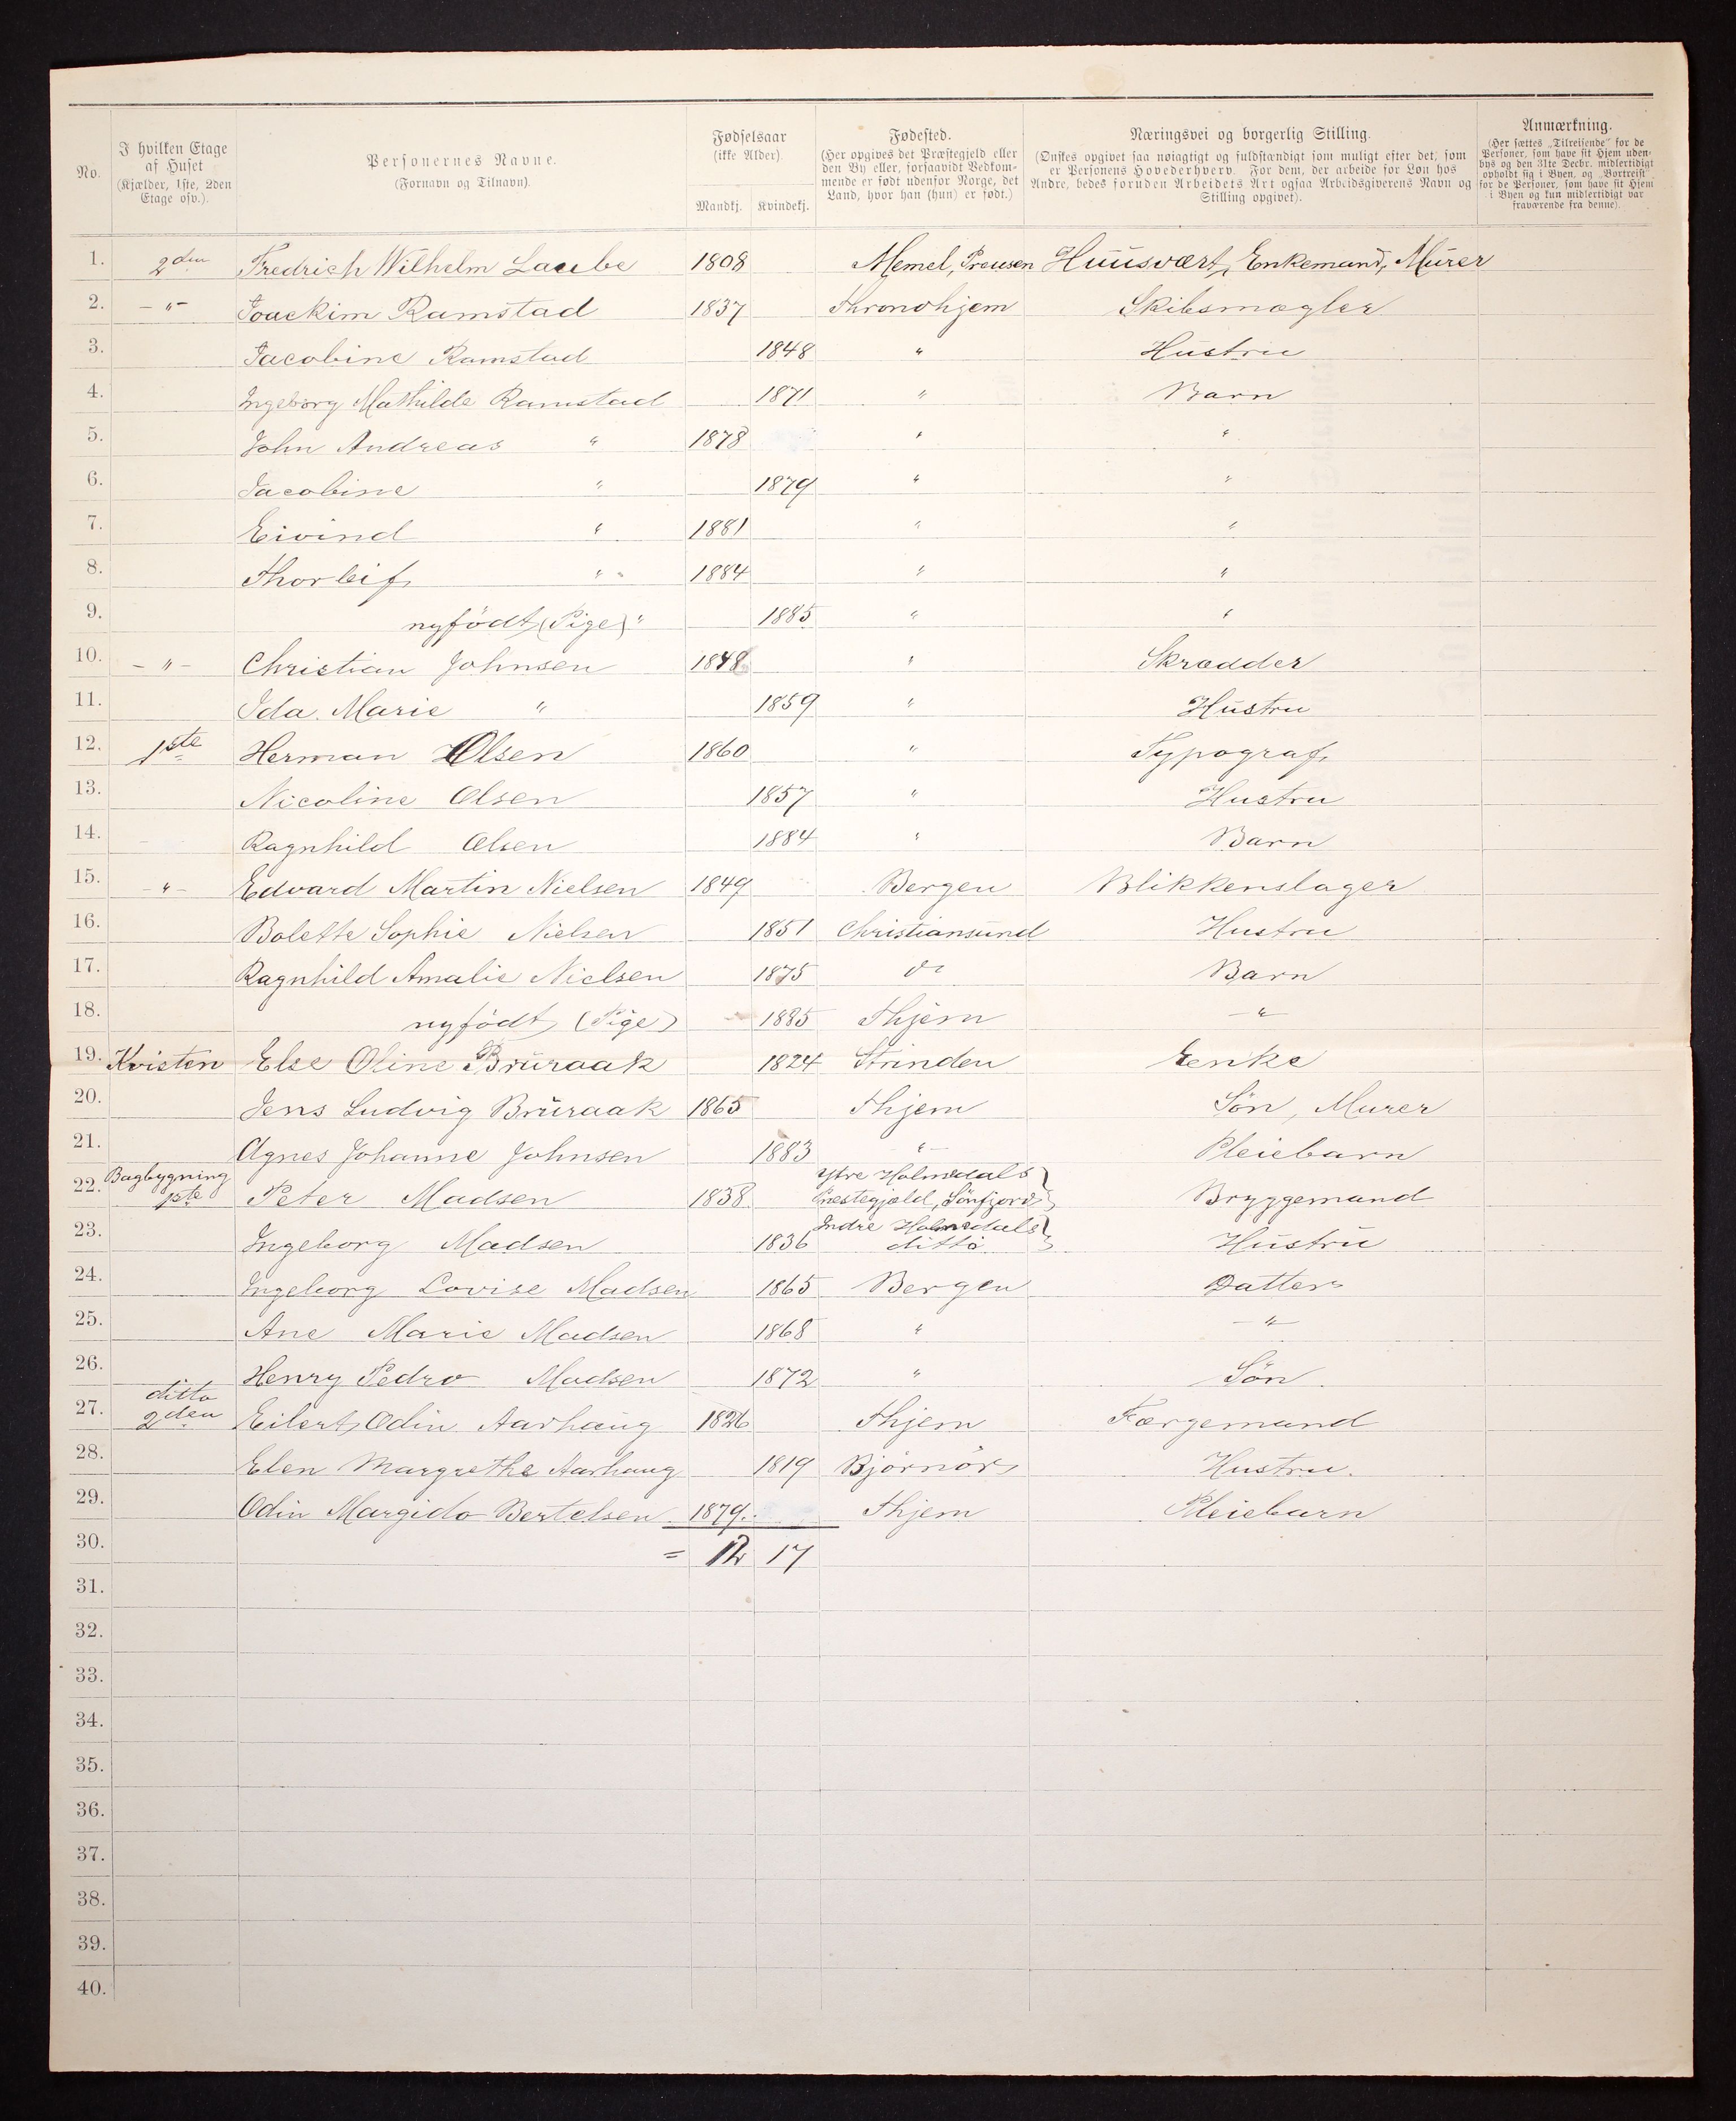 No.
I hvilken Etage
af Huset
(Kjælder, 1ste, 2den
Etage osv.).
Personernes Navne.
(Fornavn og Tilnavn).
Fødselsaar
(ikke Alder)
Mandkj. Kvindekj.
Fødested.
(Her opgives det Præstegjeld eller
den By eller, forsaavidt Vedkom-
mende er født udenfor Norge, det
Land, hvor han (hun) er født.)
Næringsvei og borgerlig Stilling.
(Ønskes opgivet saa nøiagtigt og fuldstændigt som muligt efter det, som
er Personens Hovederhverv. For dem, der arbeide for Løn hos
Andre, bedes foruden Arbeidets Art ogsaa Arbeidsgiverens Navn og
Stilling opgivet).
Anmærkning.
(Her sættes „Tilreisende" for de
Personer, som have sit Hjem uden-
bys og den 31te Decbr. midlertidigt
opholdt sig i Byen, og „Bortreist"
for de Personer, som have sit Hjem
i Byen og kun midlertidigt var
fraværende fra denne).
1. 2den Fredrich Wilhelm Laube 1808 Memel, Preusen Huusvært, Enkemand, Murer
2. — " — Joackim Ramstad 1837 Throndhjem Skibsmægler
3. Jacobine Ramstad 1848 " Hustru
4. Ingeborg Mathilde Ramstad 1871 " Barn
5. John Andreas " 1878 " "
6. Jacobine " 1879 " "
7. Eivind " 1881 " "
8. Thorleif " " 1884 " "
9. nyfödt (Pige) " 1885 " "
10. — " — Christian Johnsen 1848 " Skrædder
11. Ida Marie " 1859 " Hustru
12. 1ste Herman Olsen 1860 " Typograf
13. Nicoline Olsen 1857 " Hustru
14. Ragnhild Olsen 1884 " Barn
15. — " — Edvard Martin Nielsen 1849 Bergen Blikkenslager
16. Bolette Sophie Nielsen 1851 Christiansund Hustru
17. Ragnhild Amalie Nielsen 1875 do Barn
18. nyfödt (Pige) 1885 Thjem — " —
19. Kvisten Else Oline Bruraak 1824 Strinden Enke
20. Jens Ludvig Bruraak 1865 Thjem Sön, Murer
21. Agnes Johanne Johnsen 1883 " — Pleiebarn
22. Bagbygning
1ste Peter Madsen 1838 Ytre Holmedals
Prestegjæld, Sönfjord Bryggemand
23. Ingeborg Madsen 1836 Indre Holmedals
ditto Hustru
24. Ingeborg Lovise Madsen 1865 Bergen Datter
25. Ane Marie Madsen 1868 " — " —
26. Henry Pedro Madsen 1872 " Sön.
27. ditto
2den Eilert Odin Aarhaug 1826 Thjem Færgemand
28. Elen Margrethe Aarhaug 1819 Bjørnör Hustru.
29. Odin Margido Bertelsen 1879. Thjem Pleiebarn
30. = 12 17
31.
32.
33.
34.
35.
36.
37.
38.
39.
40.